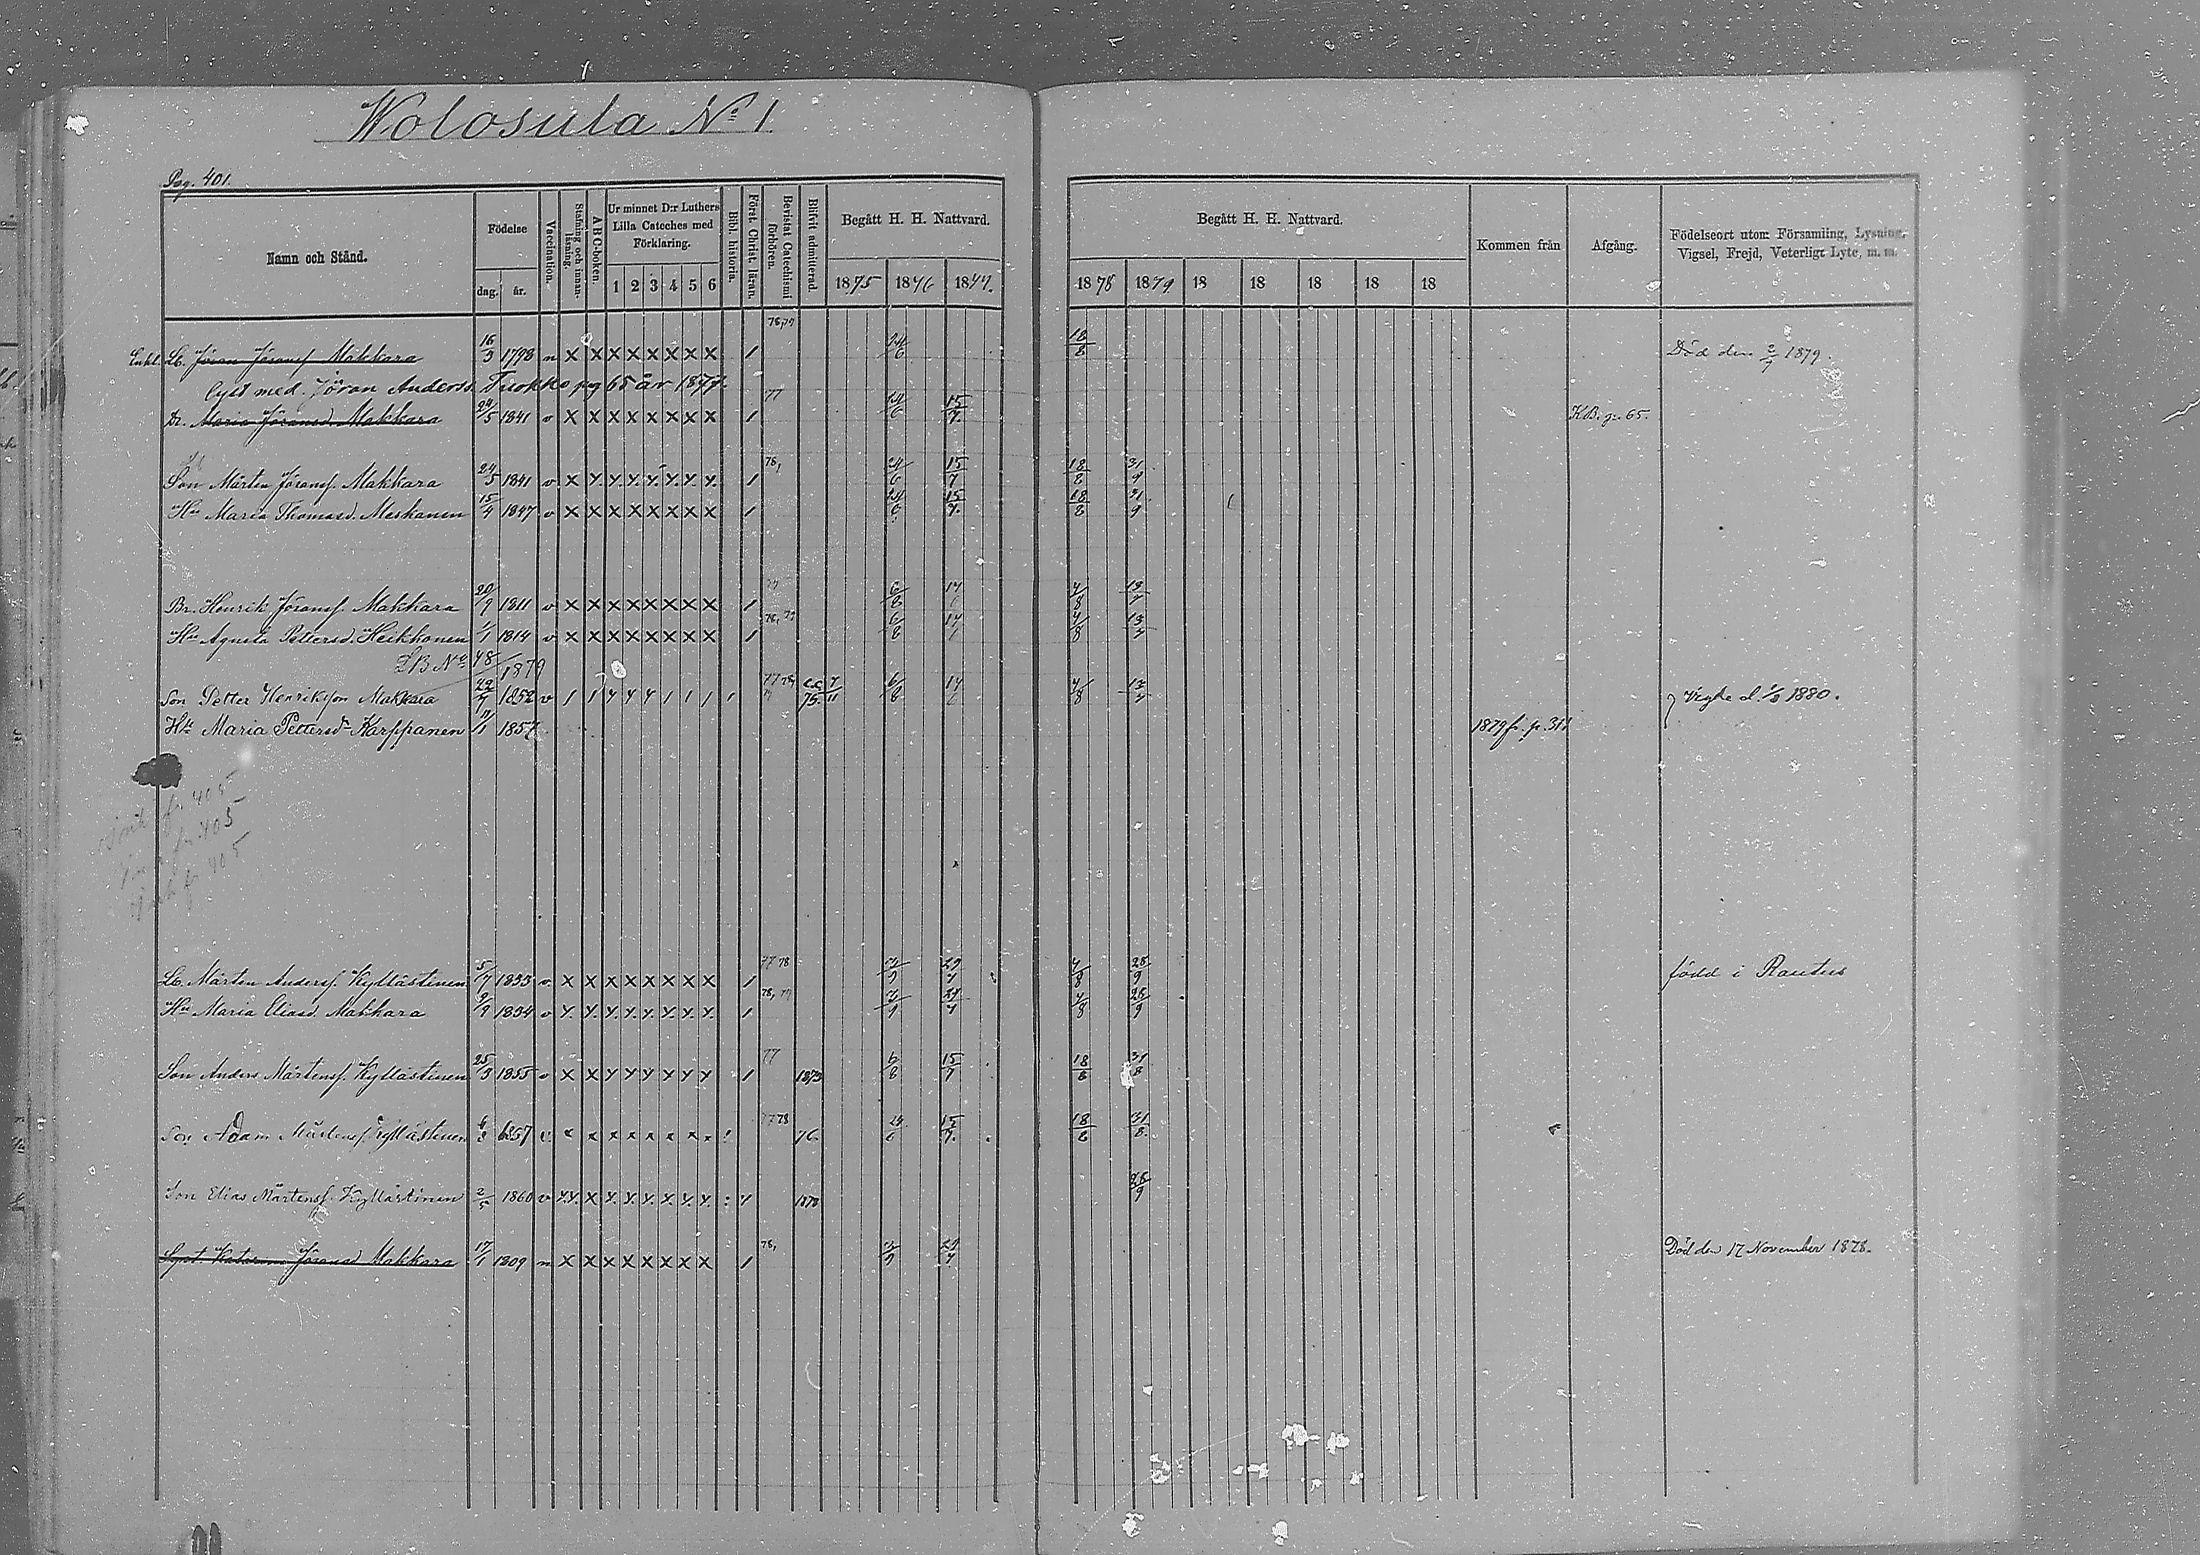 Wolosula No 1
Pag. 401.
Namn och Stånd. Födelse dag. år. Vaccination. Stafning och innanläsning. ABC-boken. Ur minnet D:r Luthers Lilla Cateches med Förklaring. 1 2 3 4 5 6 Bibl. historia. Först. Christ. läran. Bevistat Catechismi förhören. Blifvit admitterad. Begått H. H. Nattvard. 1875 1876 1877.
Begått H. H. Nattvard. 1878 1879 18 18 18 18 18 Kommen från Afgång. Födelseort utom Församling, Lysning, Vigsel, Frejd, Veterligt Lyte, m. m.
Enkl. Lb. Jöran Jöransf. Makkara 16/3 1798 n x x x x x x x x / 78,79 24/6 18/8 Död den 2/7 1879.
lyst med. Jöran Anderss. Tuokko pag 65 år 1877.
Dr. Maria Jöransd. Makkara 24/5 1841 v x x x x x x x x / 77 24/6 15/7. KB. p. 65.
Son Mårten Jöransf. Makkara 24/5 1841 v x y. y. y. y. y. y. y. / 78, 24/6 15/7 18/8 31/8
Hu Maria Thomasd. Meskanen 15/4 1847 v x x x x x x x x / 24/6 15/7. 18/8 31/9
Br. Henrik Jöransf. Makkara 20/9 1811 v x x x x x x x x / 77 6/8 17/6 4/8 13/7
Hu Agneta Pettersd. Heikkonen 1/1 1814 v x x x x x x x x / 78, 79 6/8 17/6 4/8 13/7
LB No 48/1879
Son Petter Henriksson Makkara 22/7 1852 v / / y y y / / / / 77 78, 79 6/8 17/6 4/8 13/7 Vigde d. 1/3 1880.
Hu Maria Pettersdr Karppanen 1/1 1857 1879 fr. p. 311
fr 405
fr. 405
fr 405
Lb. Mårten Andersf. Kyllästinen 5/7 1833 v. x x x x x x x x / 77 78 3/9 29/7 4/8 28/9 född i Rautus
Hu Maria Eliasd. Makkara 2/9 1834 v y. y. y. y. y. y. y. y. / 78, 79 3/9 29/7 4/8 28/9
Son Anders Mårtensf. Kyllästinen 25/3 1855 v x x y y y y y y / 77 1873 6/8 15/7 18/8 31/8
Son Adam Mårtensf. Kyllästinen 6/3 1857 v. x x x x x x x x : 77 78 76. 24/6 15/7. 18/8 31/8.
Son Elias Mårtensf. Kyllästinen 2/5 1860 v y.y. x y. y. y. y. y. y. : y 1878 28/9
Syst Katarina Jöransd Makkara 17/1 1809 n x x x x x x x x / 78, 3/9 29/7 Död den 17 November 1878.